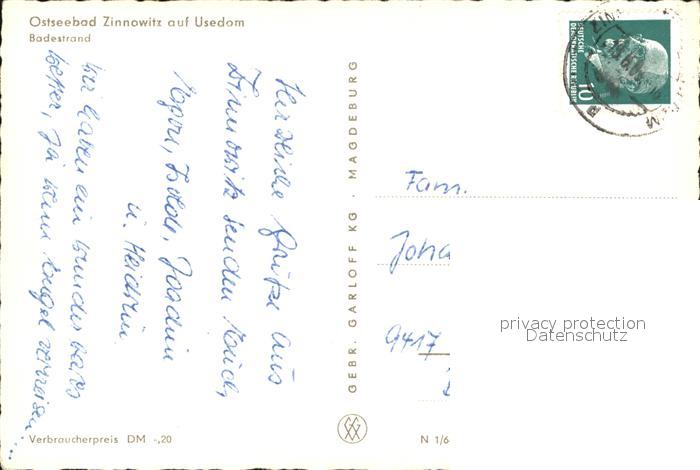 Ostseebad Zinnowitz auf Usedom
Badestrand
Herzliche Grüße aus
Zinnowitz senden
u. Heidrun
Wir haben ein wunderbares
Wetter, ja wenn Engel verreisen...
GEBR. GARLOFF KG · MAGDEBURG
DEUTSCHE
DEMOKRATISCHE REPUBLIK
10
Fam.
Joha
9417
privacy protection
Datenschutz
Verbraucherpreis DM -,20
N 1/6